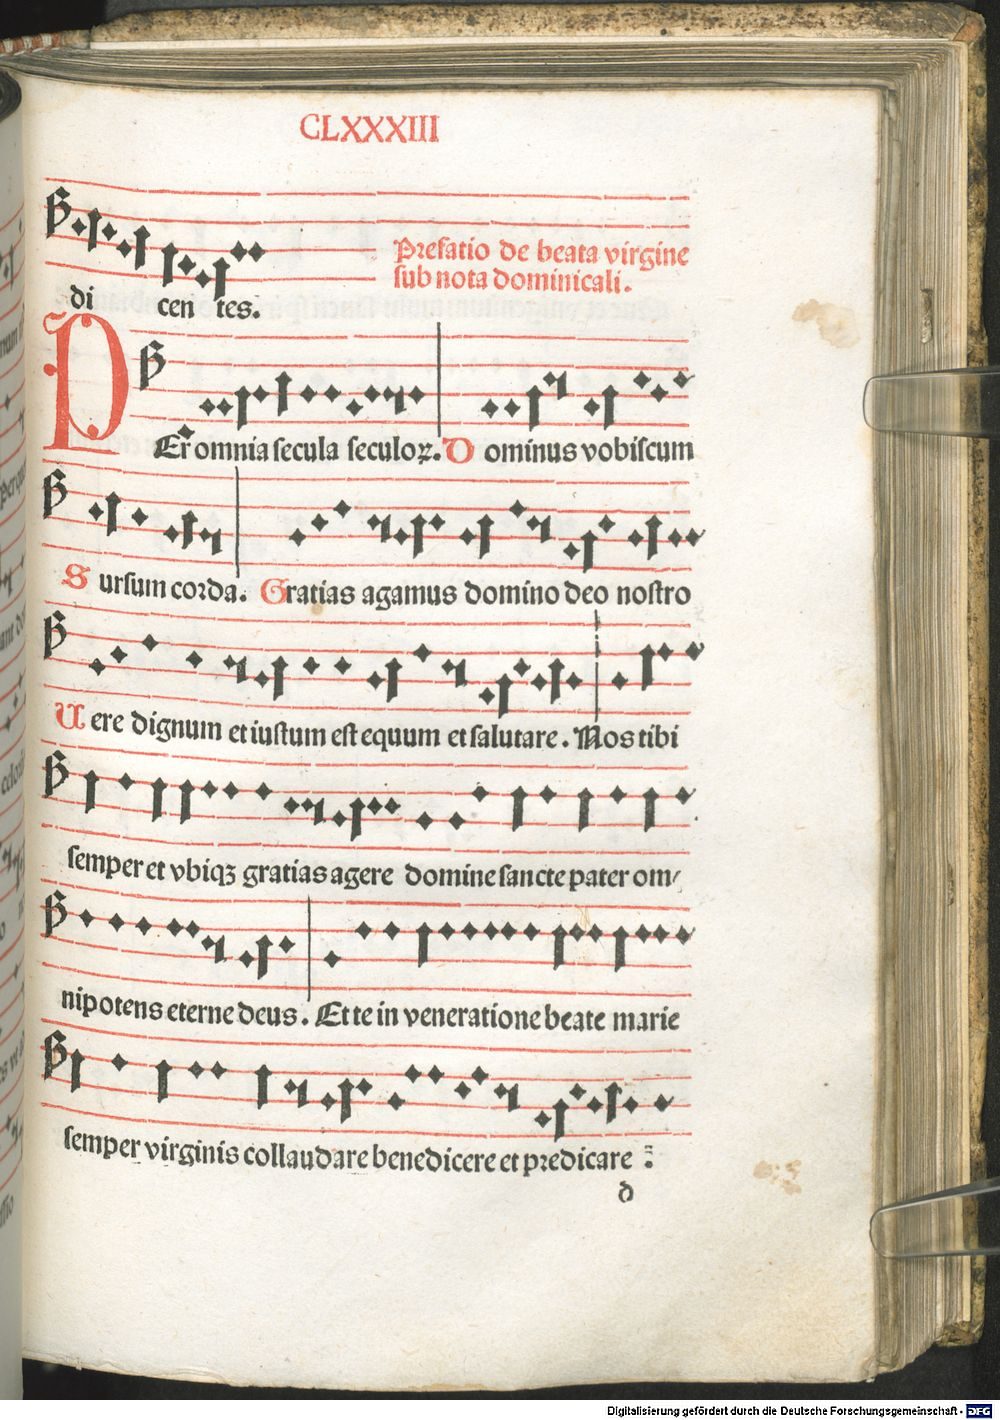 CLXXXIII
Prefatio de beata virgine
sub nota dominicali.
di cen tes.
PEr omnia secula seculoꝝ. Dominus vobiscum
Sursum corda. Gratias agamus domino deo nostro
Uere dignum et iustum est equum et salutare. Nos tibi
semper et vbiqꝫ gratias agere domine sancte pater om⸗
nipotens eterne deus. Et te in veneratione beate marie
semper virginis collaudare benedicere et predicare :
d
Digitalisierung gefördert durch die Deutsche Forschungsgemeinschaft - DFG